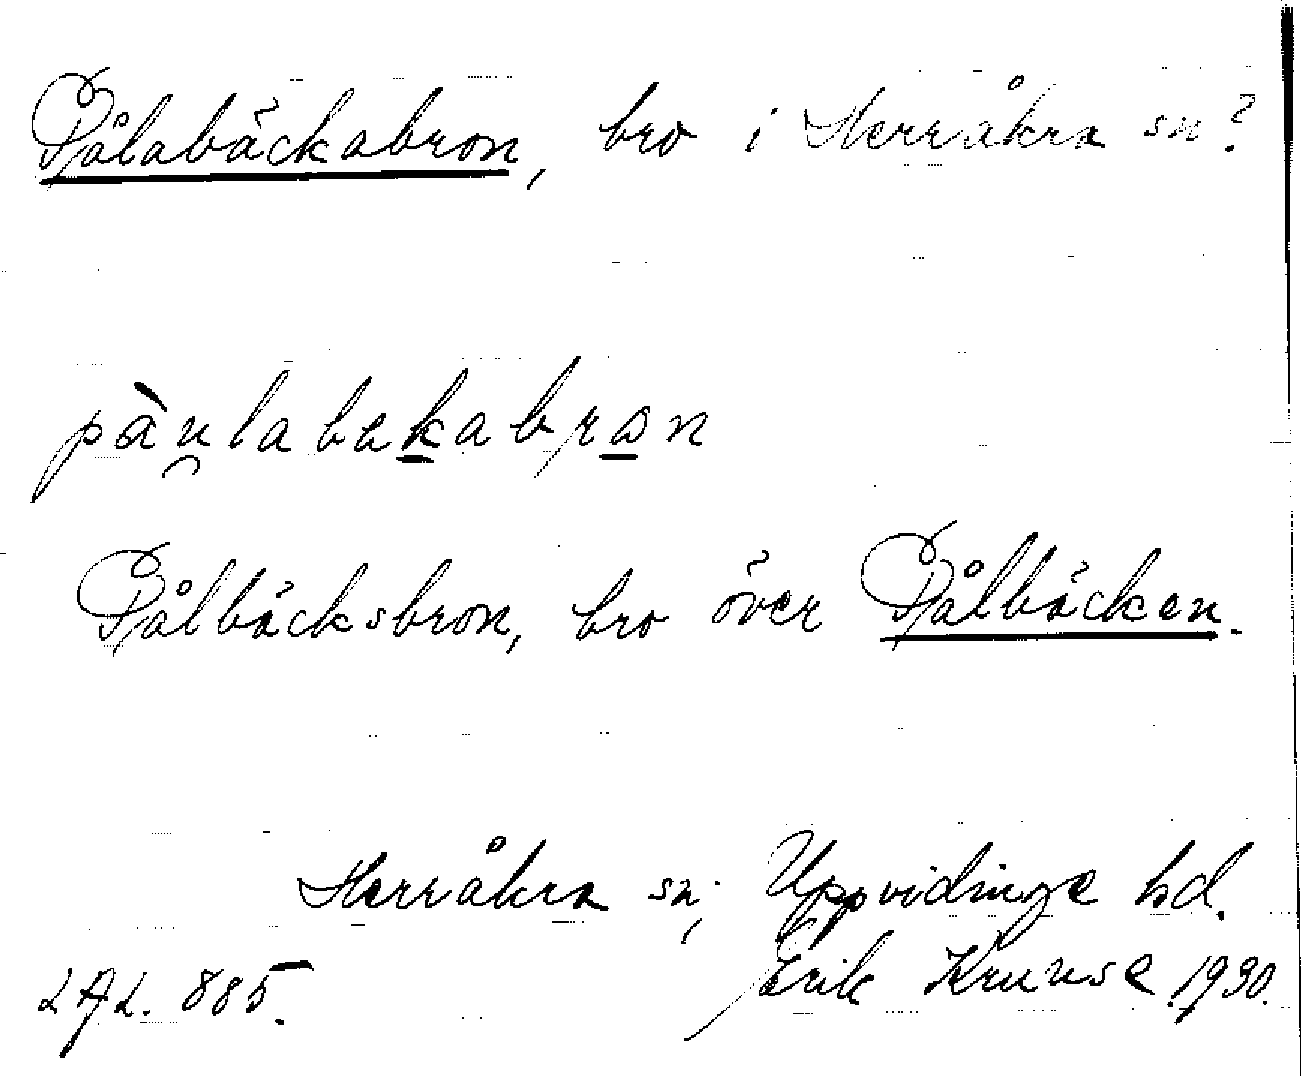 Pålabäckabron, bro i Herråkra sn?
pàu̯labekabrɷn
Pålbäcksbron, bro över Pålbäcken.
Herråkra sn, Uppvidinge hd.
LAL. 885. Erik Kruuse 1930.